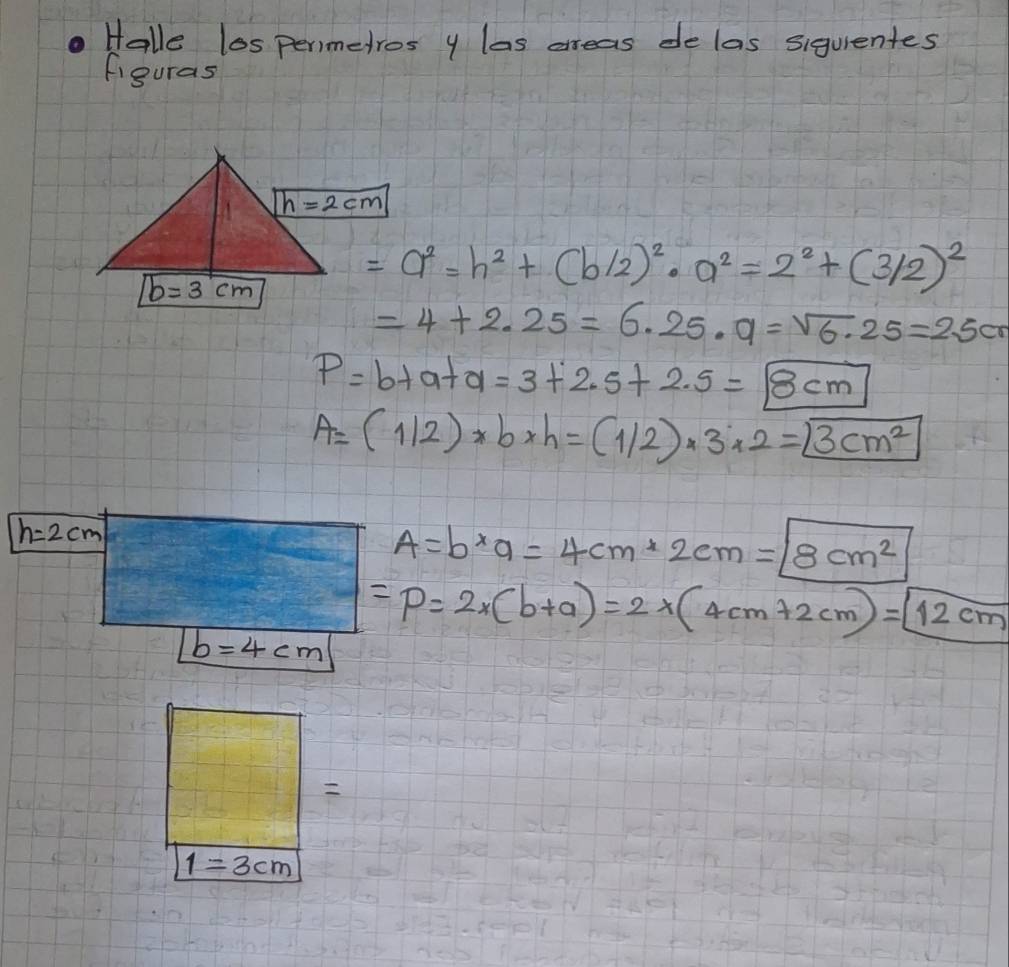 • Halle los perimetros y las areas de las siguientes
figuras
h=2cm
b=3 cm
= a² = h² + (b/2)². a² = 2² + (3/2)²
= 4 + 2.25 = 6.25. a = √6.25 = 2.5cm
P = b+a+a = 3+2.5+2.5 = 8cm
A= (1/2) * b * h = (1/2) * 3 * 2 = 3cm²
h=2cm
A = b * a = 4cm * 2cm = 8 cm²
= P = 2 x (b+a) = 2 x (4cm+2cm) = 12 cm
b=4cm
=
1=3cm